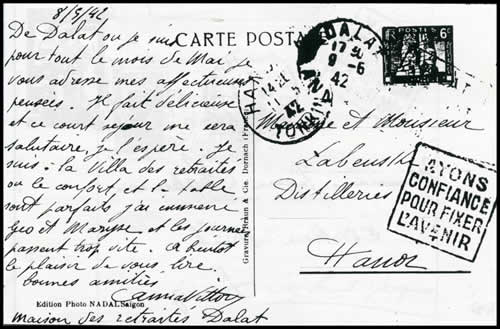 8/5/42
De Dalat ou je suis
pour tout le mois de Mai, je
vous adresse mes affectueuses
pensées. Il fait délicieux
et ce court séjour me sera
salutaire, je l'espère. Je
suis à la Villa des retraités
ou le confort, et la table
sont parfaits j'ai emmené
Geo et Maryse et les journées
passent trop vite. A bientot
le plaisir de vous lire.
bonnes amitiés
maison des retraités Dalat
Edition Photo NADAL Saigon
Gravure Braun & Cie Dornach
CARTE POSTA
DALAT
17
9-6
42
HA
42
TONKIN
POSTES
6c
et Monsieur
Distilleries
Hanoi
AYONS
CONFIANCE
POUR FIXER
L'AVENIR